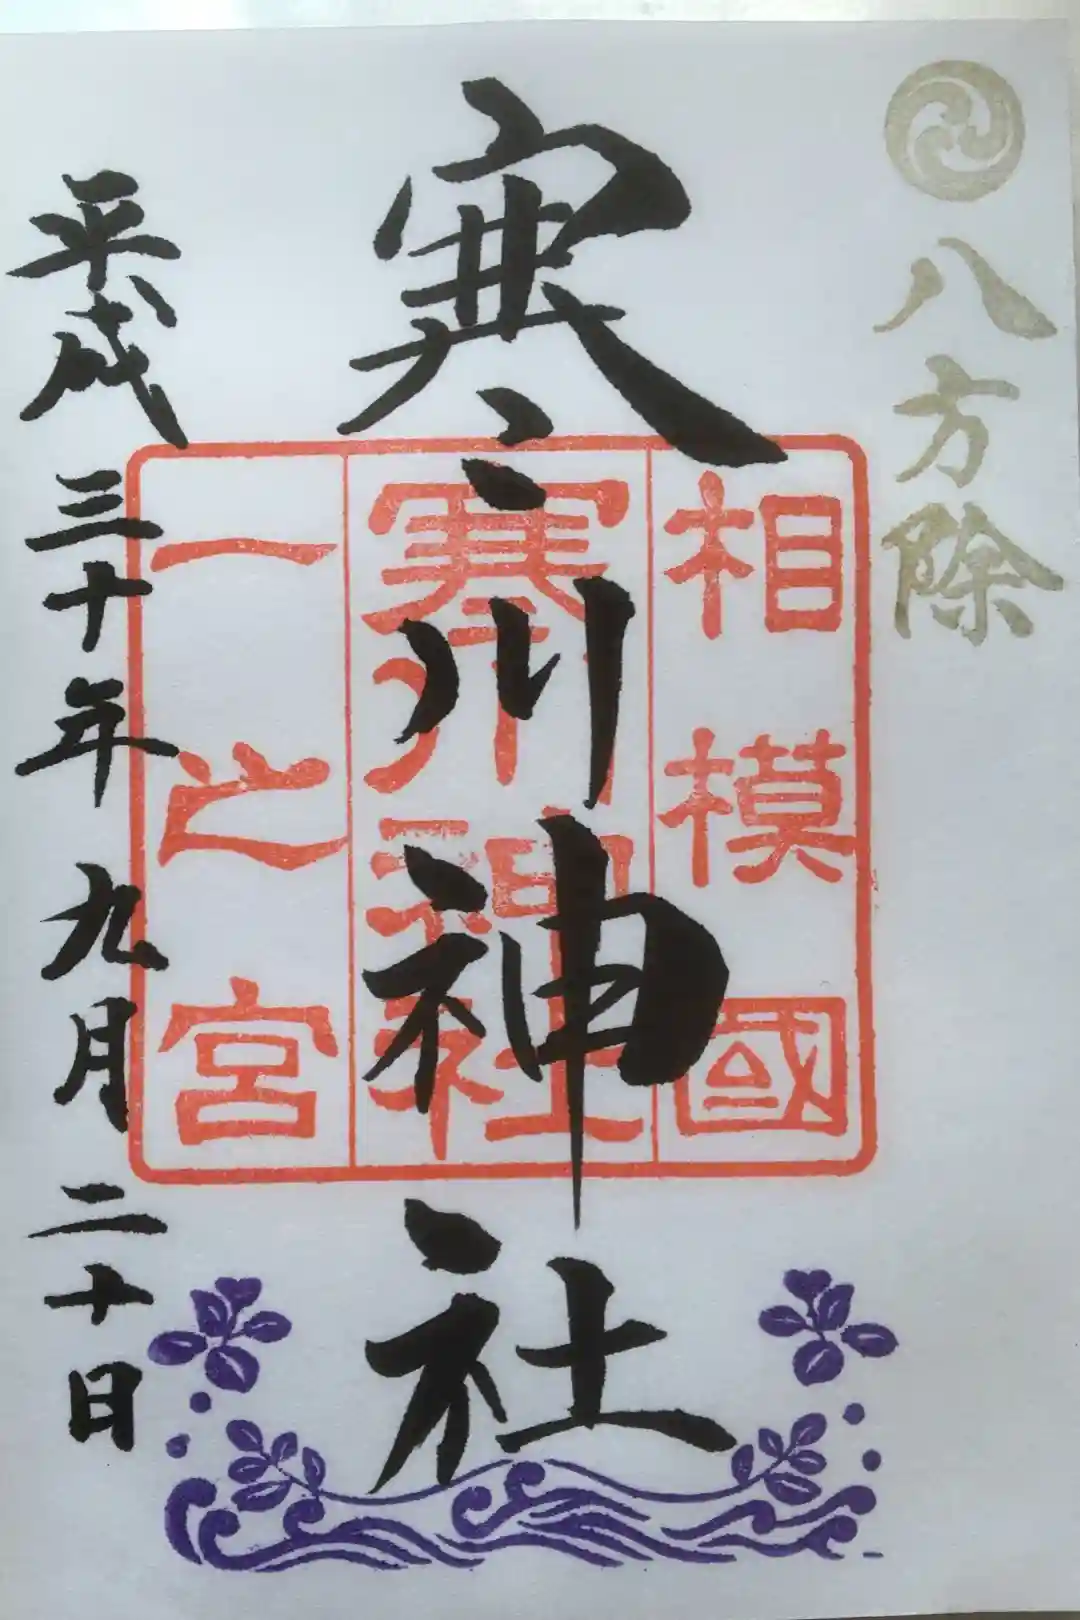 八方除
寒川神社
相模國
寒川神社
一之宮
平成三十年九月二十日